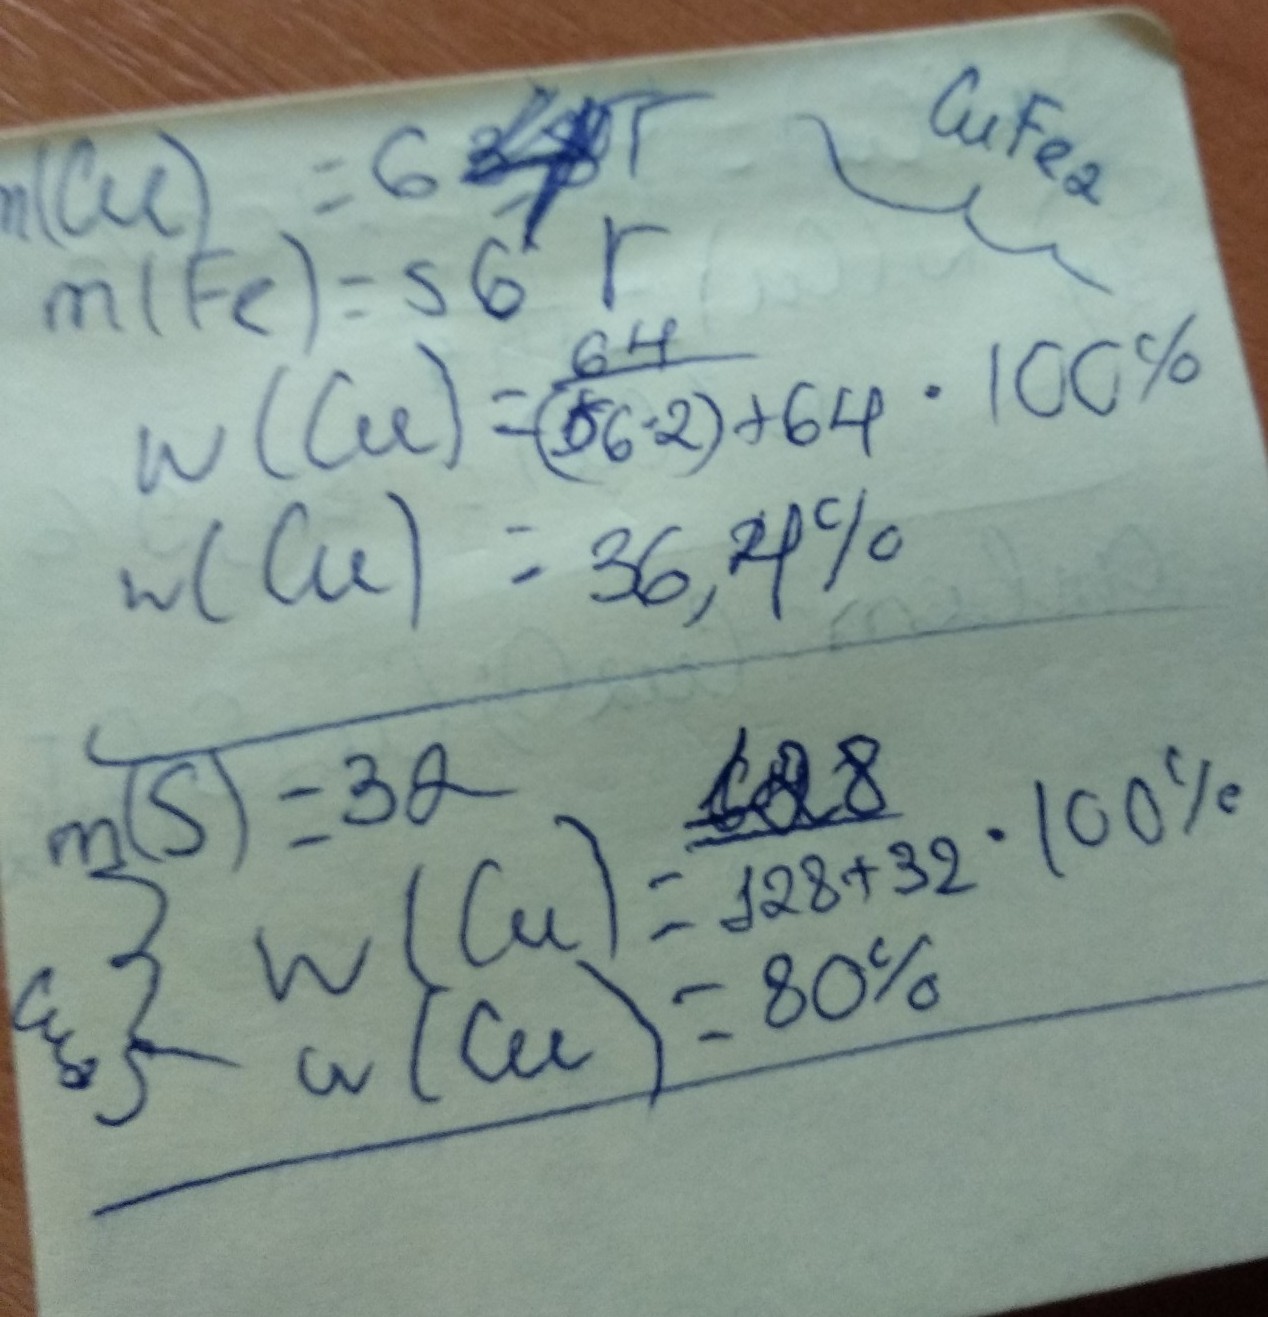 CuFe2
m(Cu) = 64 г
m(Fe) = 56 г
w(Cu) = 64 / (56·2)+64 · 100%
w(Cu) = 36,4%
m(S) = 32
w(Cu) = 128 / 128+32 · 100%
w(Cu) = 80%